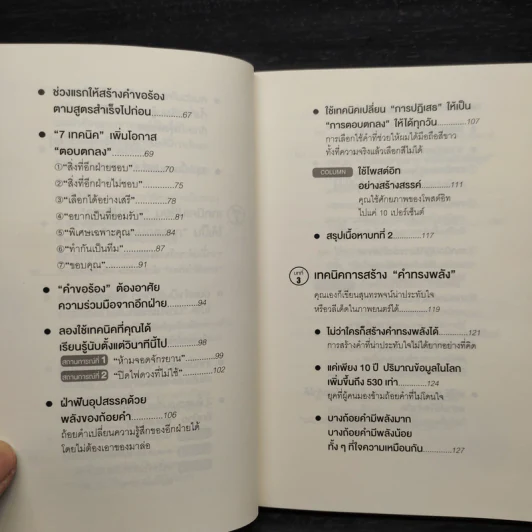 ช่วงแรกให้สร้างคำขอร้อง
ตามสูตรสำเร็จไปก่อน...............67
"7 เทคนิค" เพิ่มโอกาส
"ตอบตกลง"...............69
①"สิ่งที่อีกฝ่ายชอบ"...............70
②"สิ่งที่อีกฝ่ายไม่ชอบ"...............75
③"เลือกได้อย่างเสรี"...............78
④"อยากเป็นที่ยอมรับ"...............81
⑤"พิเศษเฉพาะคุณ"...............84
⑥"ทำกันเป็นทีม"...............87
⑦"ขอบคุณ"...............91
"คำขอร้อง" ต้องอาศัย
ความร่วมมือจากอีกฝ่าย...............94
ลองใช้เทคนิคที่คุณได้
เรียนรู้นับตั้งแต่วินาทีนี้ไป...............98
สถานการณ์ที่ 1 "ห้ามจอดจักรยาน"...............99
สถานการณ์ที่ 2 "ปิดไฟดวงที่ไม่ใช้"...............102
ฝ่าฟันอุปสรรคด้วย
พลังของถ้อยคำ...............106
ถ้อยคำเปลี่ยนความรู้สึกของอีกฝ่ายได้
โดยไม่ต้องเอาของมาล่อ
ใช้เทคนิคเปลี่ยน "การปฏิเสธ" ให้เป็น
"การตอบตกลง" ให้ได้ทุกวัน...............107
การเลือกใช้คำที่ช่วยให้ผมได้มือถือสีขาว
ทั้งที่ความจริงแล้วเลือกสีไม่ได้
COLUMN ใช้โพสต์อิท
อย่างสร้างสรรค์...............111
คุณใช้ศักยภาพของโพสต์อิท
ไปแค่ 10 เปอร์เซ็นต์
สรุปเนื้อหาบทที่ 2...............117
บทที่ 3 เทคนิคการสร้าง "คำทรงพลัง"
คุณเองก็เขียนสุนทรพจน์น่าประทับใจ
หรือวลีเด็ดในภาพยนตร์ได้...............119
ไม่ว่าใครก็สร้างคำทรงพลังได้...............121
การสร้างคำที่น่าประทับใจไม่ได้ยากอย่างที่คิด
แค่เพียง 10 ปี ปริมาณข้อมูลในโลก
เพิ่มขึ้นถึง 530 เท่า...............124
ยุคที่ผู้คนมองข้ามถ้อยคำที่ไม่โดนใจ
บางถ้อยคำมีพลังมาก
บางถ้อยคำมีพลังน้อย
ทั้ง ๆ ที่ใจความเหมือนกัน...............127